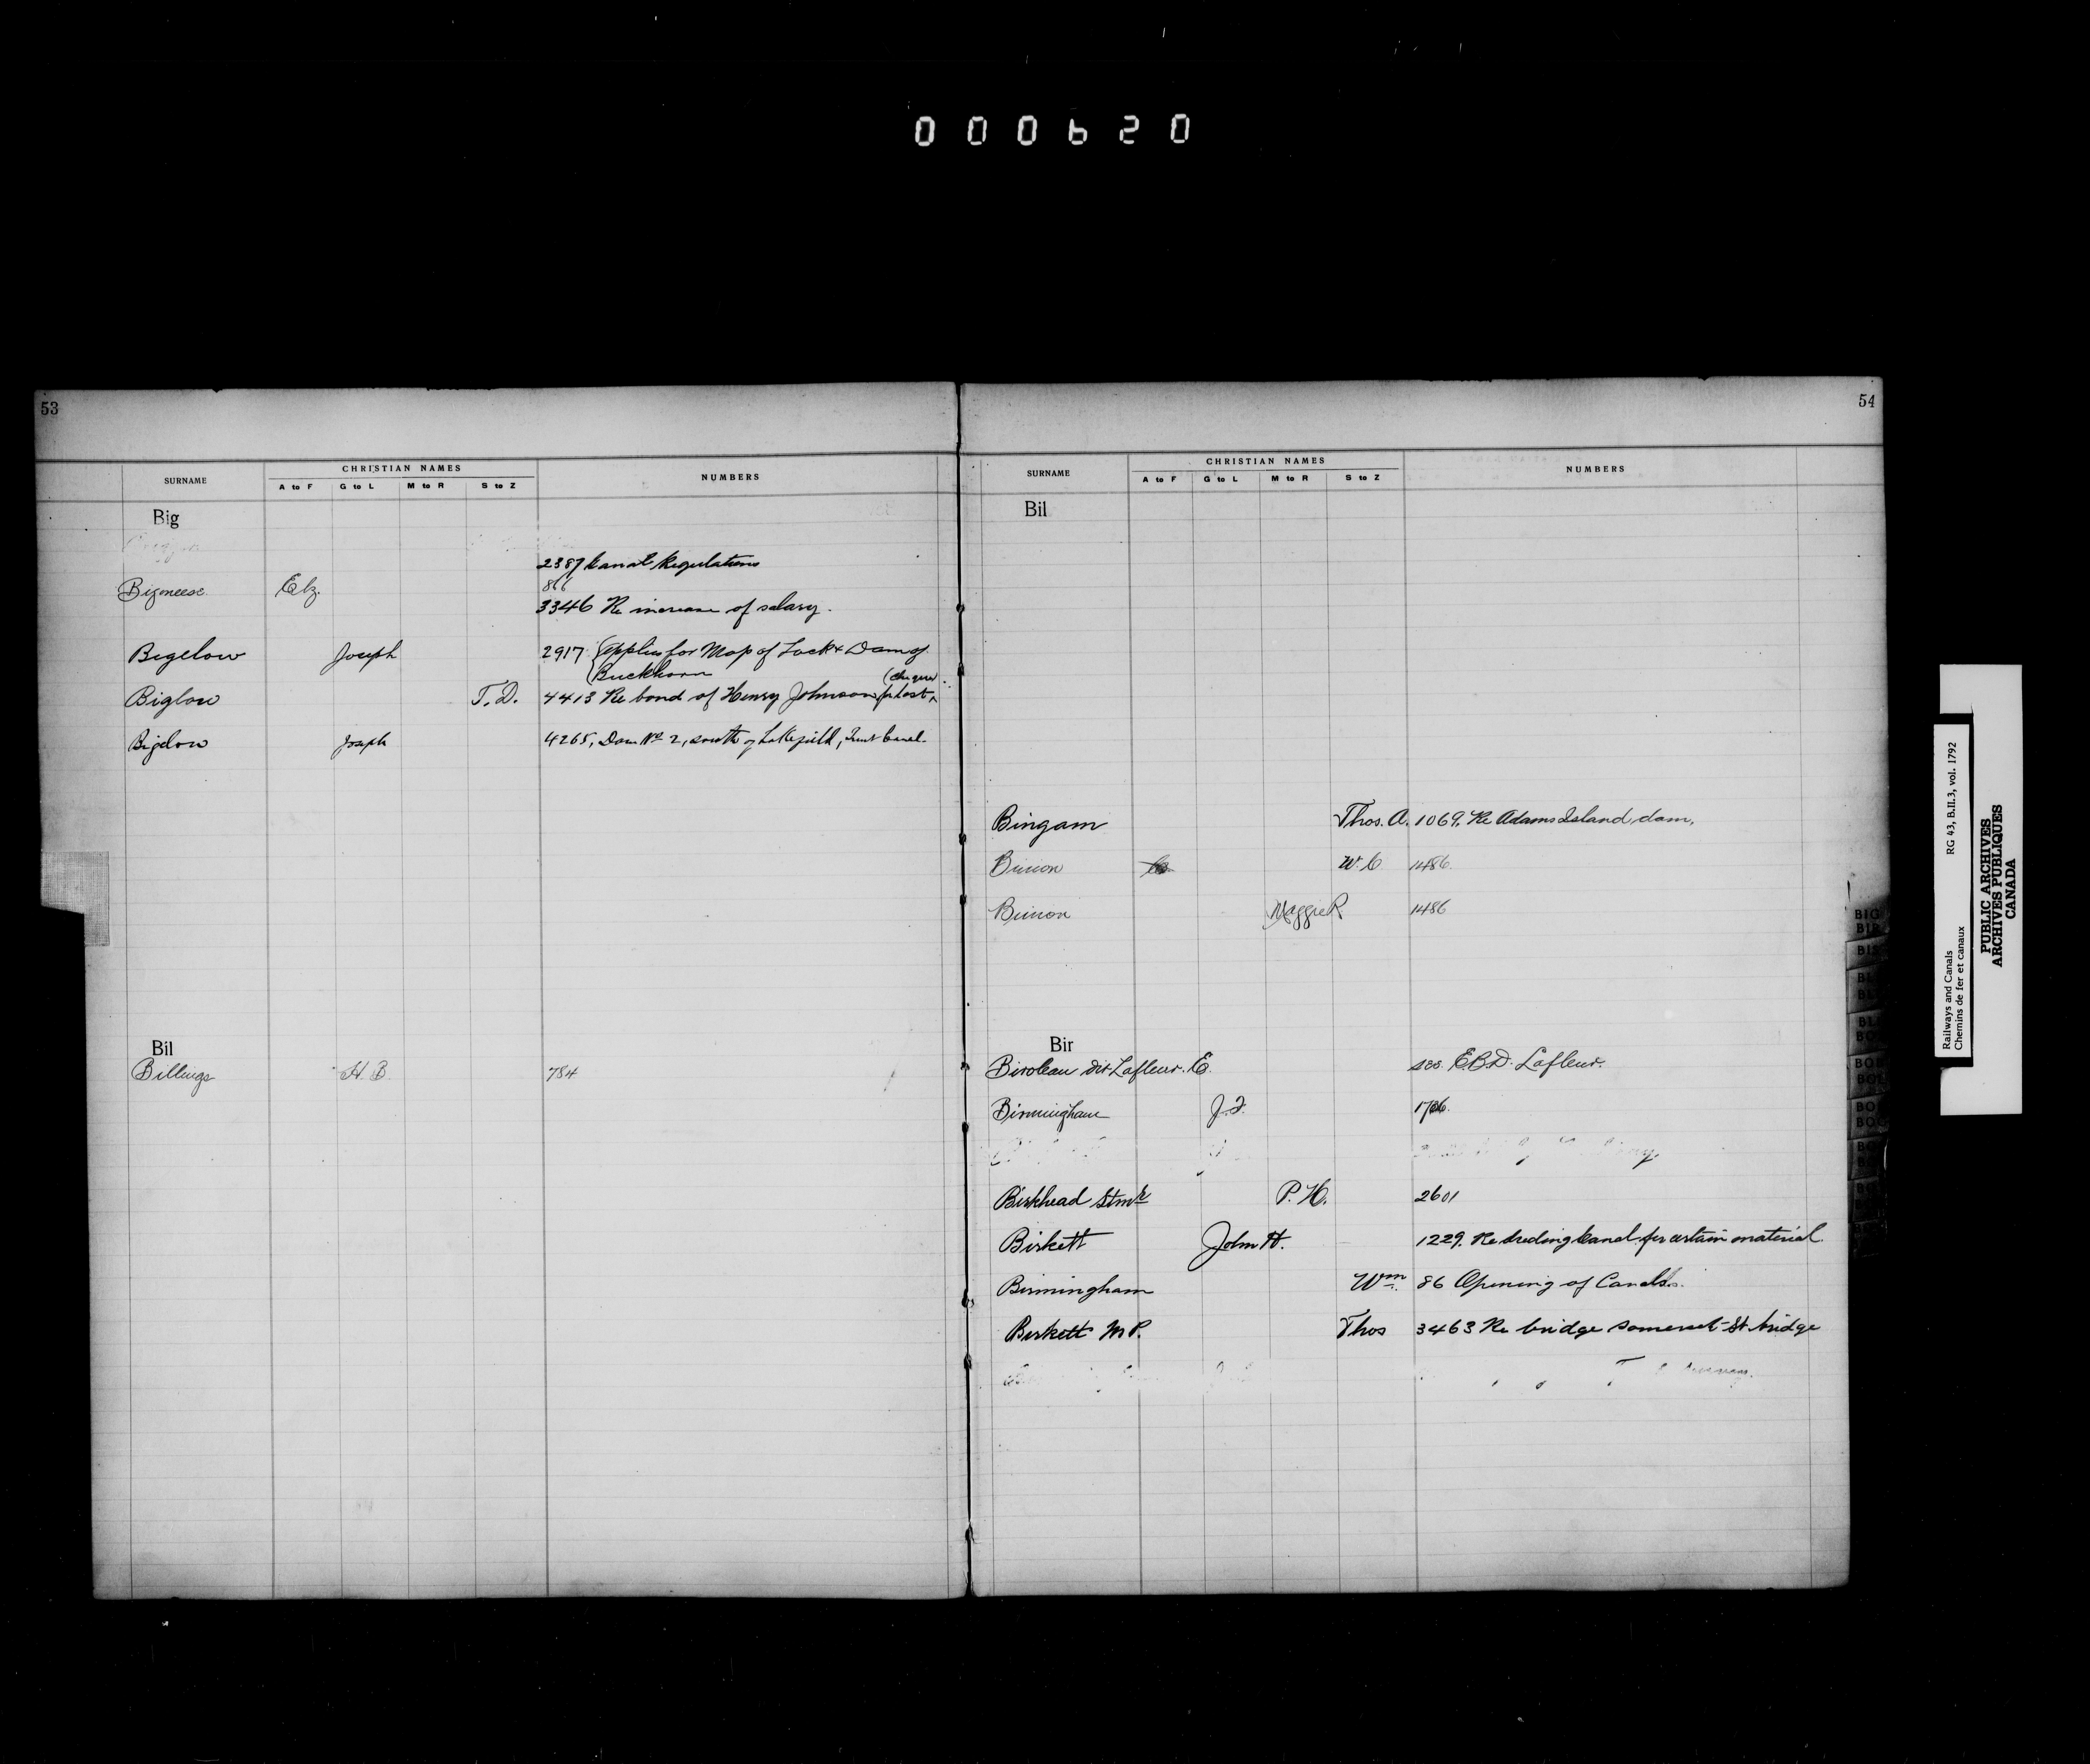 000620
53
SURNAME CHRISTIAN NAMES NUMBERS
A to F G to L M to R S to Z
Big
2387 Canal Regulations
866
Bigoneese Elz.
3346 Re increase of salary.
Bigelow Joseph 2917 {Applies for Map of Lock & Dam of
Buckhorn
Biglow T.D. 4413 Re bond of Henry Johnson (cheque lost
Bigelow Joseph 4265, Dam No 2, south of Lakefield, Trent Canal.
Bil
Billings H.B. 784
54
SURNAME CHRISTIAN NAMES NUMBERS
A to F G to L M to R S to Z
Bil
Bingam Thos. A. 1069. Re Adams Island dam.
Binion W.C 1486.
Binion Maggie R 1486
Bir
Biroleau dit Lafleur. E. see E.B.D. Lafleur.
Birmingham J.
Birkhead Stmr P.H. 2601
Birkett John H. 1229. Re dredging Canal for certain material
Birmingham Wm. 86 Opening of Canals.
Birkett M.P. Thos 3463 Re bridge Somerset St bridge
BIG
BIR
BIS
Railways and Canals RG 43, B.II.3, vol. 1792
Chemins de fer et canaux
PUBLIC ARCHIVES
ARCHIVES PUBLIQUES
CANADA